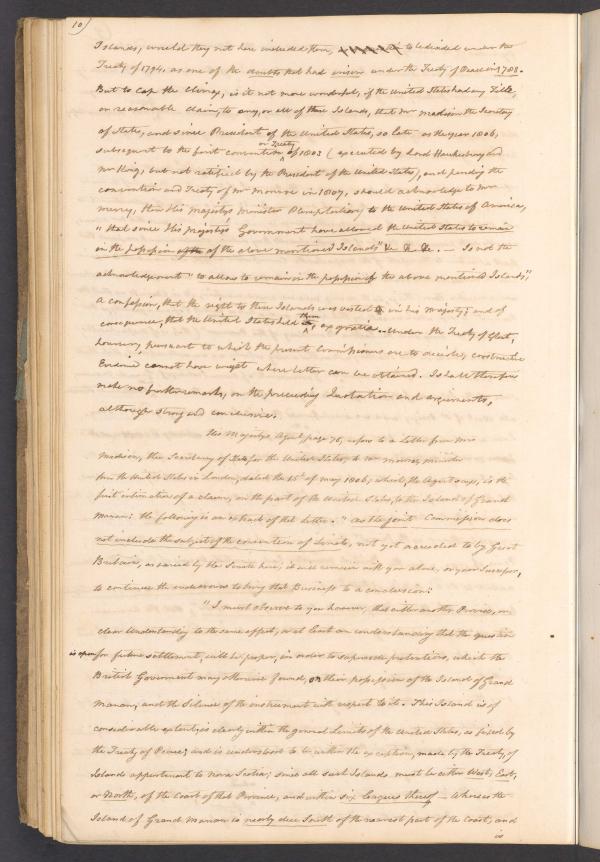 10)
Islands, would they not have included them, to be decided under the
Treaty of 1794, as one of the doubts that had arisen under the Treaty of Peace in 1783.
But to Cap the Climax, is it not more wonderful, if the United States had any Title,
or reasonable claim, to any, or all of these Islands, that Mr Madison the Secretary
of State, and since President of the United States, so late as the year 1806,
subsequent to the joint convention or Treaty of 1803 (executed by Lord Hawkesbury and
Mr King, but not ratified by the President of the United States), and pending the
convention and Treaty of Mr Monroe in 1807, should acknowledge to Mr
Merry, then His Majestys Minister Plenipotentiary to the United States of America,
"that since His Majestys Government have allowed the United States to remain
in the possession of the of the above mentioned Islands" &c &c &c. — Is not the
acknowledgement "to allow to remain in the possession of the above mentioned Islands",
a confession, that the right to these Islands was vested in his Majesty; and of
consequence, that the United States held them, ex gratia. — Under the Treaty of Ghent,
however, pursuant to which the present Commissioners are to decide, constructive
Evidence cannot have weight where better can be obtained. I shall therefore
make no further remarks, on the preceeding Quotation and arguments,
although strong and conclusive.
His Majestys Agent, page 76, refers to a Letter from Mr
Madison, then Secretary of State for the United States, to Mr Monroe, minister
from the United States in London, dated the 15th of May 1806; which, the Agent says, is the
first intimation of a claim, on the part of the United States, to the Island of Grand
Manan: the following is an extract of that Letter. "As the joint Commission does
not include the subject of the convention of Limits, not yet acceded to by Great
Britain, as varied by the Senate here; it will remain with you alone, or your Successor,
to continue the endeavours to bring that Business to a conclusion."
"I must observe to you however, that either another Proviso, or
clear Understanding to the same effect, or at least an understanding that the question
is open for future settlement, will be proper, in order to supersede pretentions, which the
British Government may otherwise found, on their possession of the Island of Grand
Manan, and the Silence of the instrument with respect to it. This Island is of
considerable extent, is clearly within the general Limits of the United States, as fixed by
the Treaty of Peace; and is understood to be within the exception, made by the Treaty, of
Islands appertinent to Nova Scotia; since all such Islands, must be either West, East,
or North, of the Coast of that Province, and within six Leagues thereof — Whereas the
Island of Grand Manan is nearly due South of the nearest part of the Coast, and
is